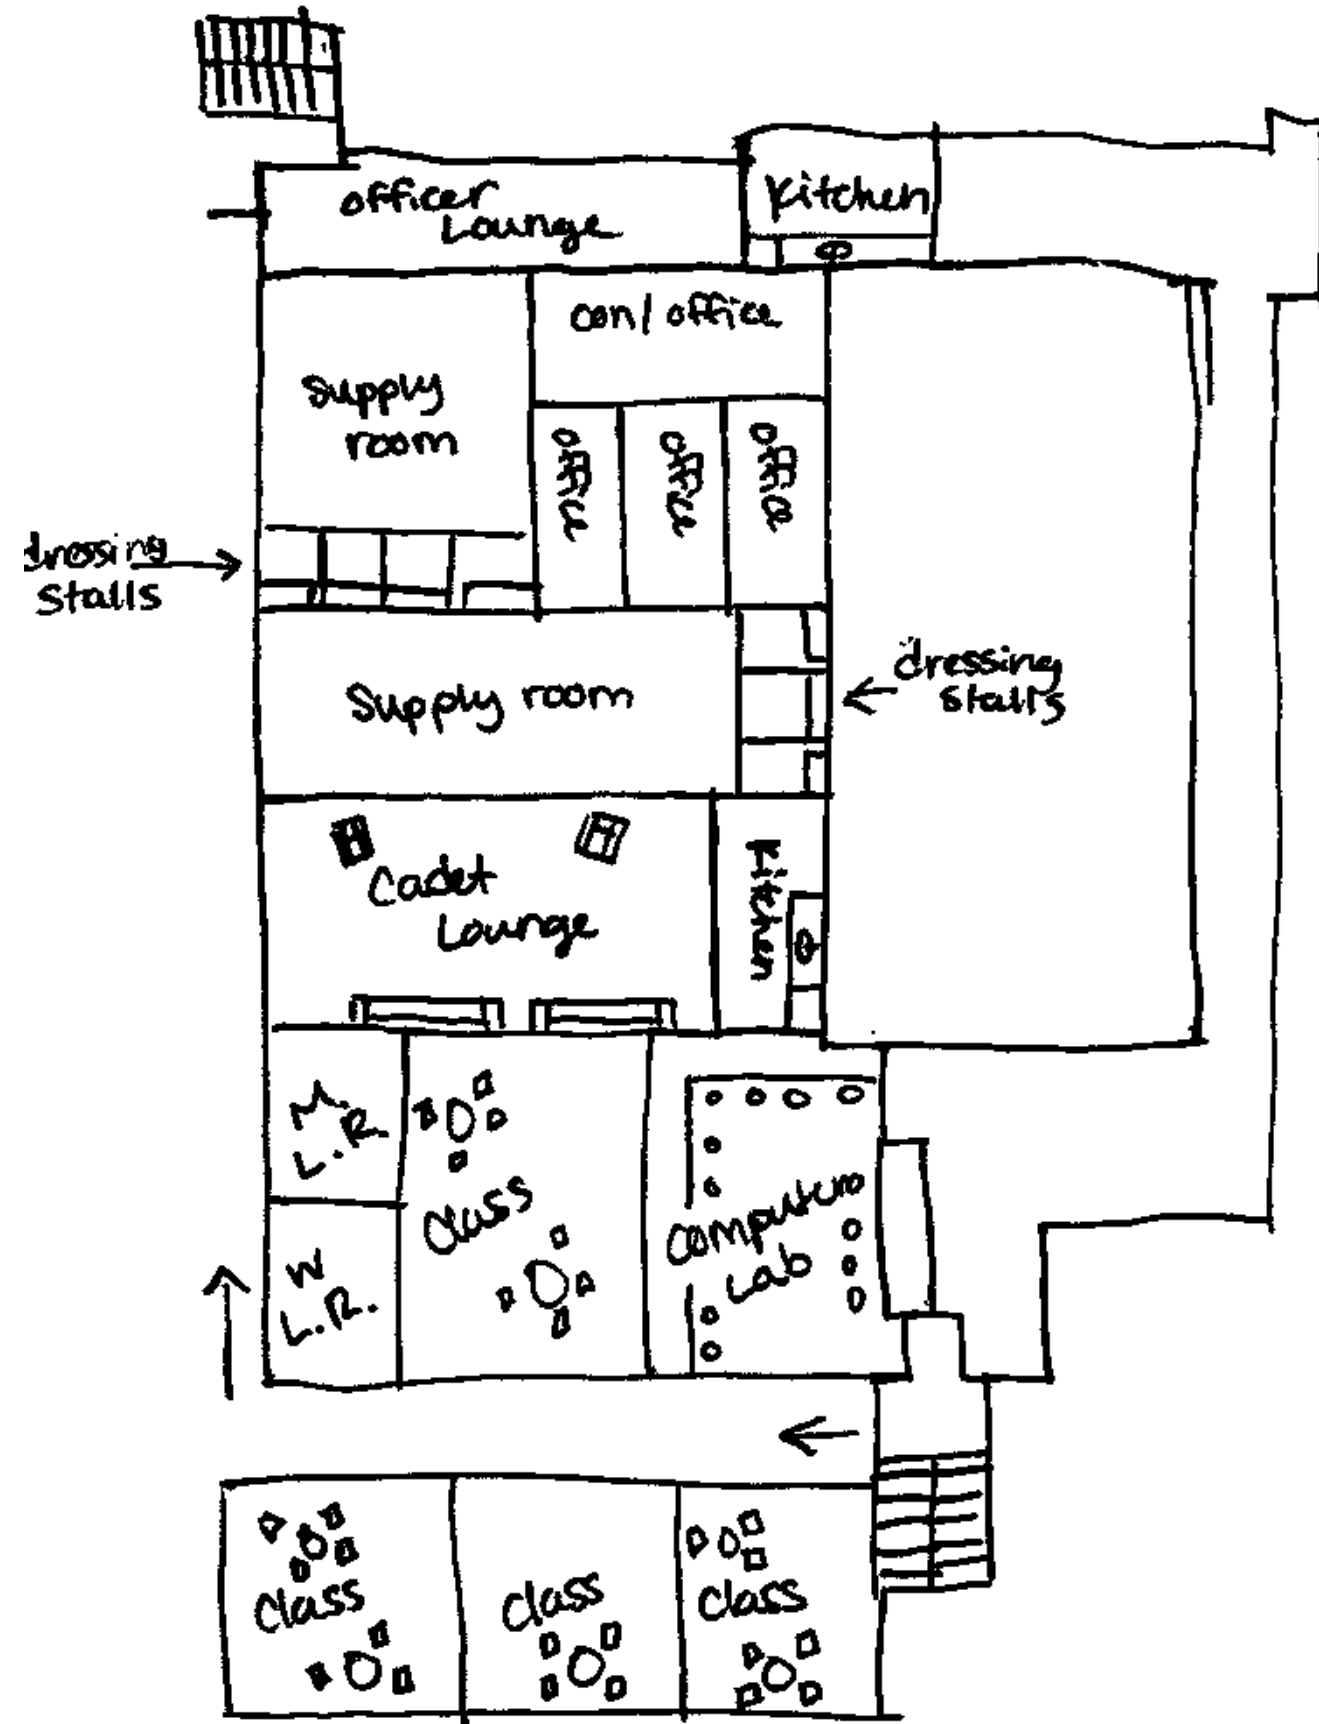 officer
Lounge
Kitchen
con/office
Supply
room
office
office
office
dressing
Stalls
Supply room
dressing
Stalls
Cadet
Lounge
Kitchen
M.
L.R.
Class
Computer
Lab
W
L.R.
Class
Class
Class